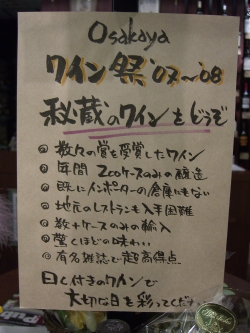 Osakaya
ワイン祭 '07~'08
秘蔵のワインをどうぞ
数々の賞を受賞したワイン
年間 200ケースのみの醸造
既にインポーターの倉庫にもない
地元のレストランも入手困難
数十ケースのみの輸入
驚くほどの味わい
有名雑誌で超高得点
曰く付きのワインで
大切な日を彩ってくだ